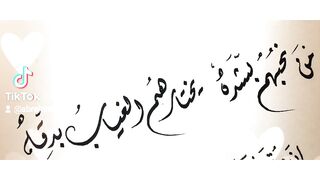 من نحبهم بشدة يختارهم الغياب بدقة
TikTok